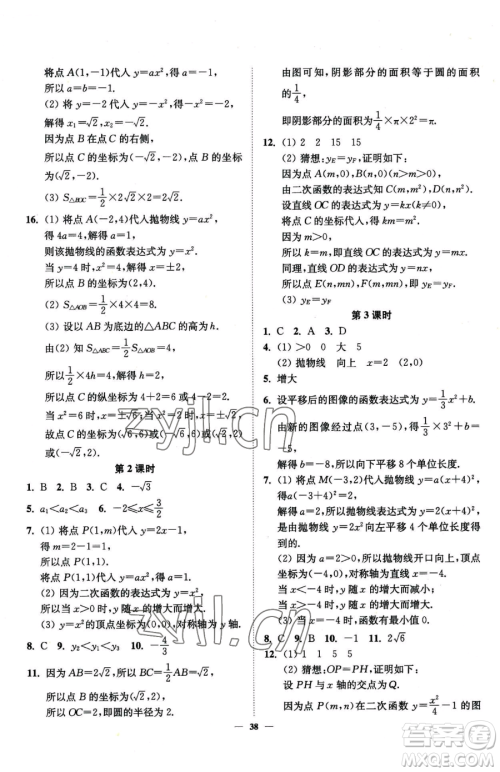 将点A(1,-1)代入y=ax²,得a=-1.
所以a=b=-1.
(2) 将y=-2代入y=-x²,得-x²=-2.
解得x₁=√2,x₂=-√2.
因为点B在点C的右侧,
所以点C的坐标为(-√2,-2),点B的坐标为(√2,-2).
(3) S△BOC=1/2×2√2×2=2√2.
16. (1) 将点A(-2,4)代入抛物线y=ax²,
得4a=4.解得a=1.
则该抛物线的函数表达式为y=x².
当y=4时,x²=4.解得x=±2.
所以点B的坐标为(2,4).
(2) S△AOB=1/2×4×4=8.
(3) 设以AB为底边的△ABC的高为h.
由(2)可知S△ABC=S△AOB=8,
所以1/2×4h=8.解得h=2.
所以点C的纵坐标为6或2.
当x²=6时,x=±√6;当x²=2时,x=±√2.
故点C的坐标为(√6,6)或(-√6,6)或(√2,2)或(-√2,2).
第2课时
1. B 2. B 3. C 4. -√3
5. a₁<a₂<a₃
7. (1) 将点P(1,m)代入y=2x-1,
得m=2-1=1.
所以点P(1,1).
将点P(1,1)代入y=ax²,得a=1.
(2) 因为二次函数的表达式为y=x²,
所以当x>0时,y随x的增大而增大.
(3) 顶点坐标为(0,0),对称轴为y轴.
8. C 9. y₂<y₁<y₃ 10. -4/3
11. 因为AB=2√2,所以BC=1/2AB=√2.
所以点B的坐标为(√2,2).
所以OC=2,即圆的半径为2.
由图可知,阴影部分的面积等于圆的面积
的1/4,
即阴影部分的面积为1/4×π×2²=π.
12. (1) 1 2 15 15
(2) 猜想:yE=yF,证明如下:
因为点A(m,0),B(n,0)(n>m>0),
由二次函数的表达式知C(m,m²),D(n,n²).
设直线OC的表达式为y=kx(k≠0).
将点C的坐标代入,得m²=km.
因为m>0,
所以k=m,即直线OC的表达式为y=mx.
同理,直线OD的表达式为y=nx.
所以点E(n,mn),F(m,mn),即yE=yF.
(3) yE=yF
第3课时
1. C 2. A 3. D
4. (1) >0 0 大 5
(2) 抛物线 向上 x=2 (2,0)
5. 增大
6. 设平移后的图像的函数表达式为y=1/3x²+b.
由新的图像经过点(3,-5),得-5=1/3×3²+b.
解得b=-8.所以向下平移8个单位长度.
7. (1) 将点M代入抛物线y=a(x+4)²,
得a(-3+4)²=2.解得a=2.
所以抛物线表达式为y=2(x+4)².
(2) 因为a=2>0,所以抛物线开口向上,顶点坐标为(-4,0),对称轴为直线x=-4.
当x<-4时,y随x的增大而减小;
当x>-4时,y随x的增大而增大.
当x=-4时,函数有最小值0.
8. C 9. B 10. -1 11. 2√6
12. (1) 5 5 = =
(2) 猜想:OP=PH,证明如下:
设PH与x轴的交点为Q.
因为点P(m,n)在二次函数y=x²/4-1的图
38
答案圈
zyjl.cn